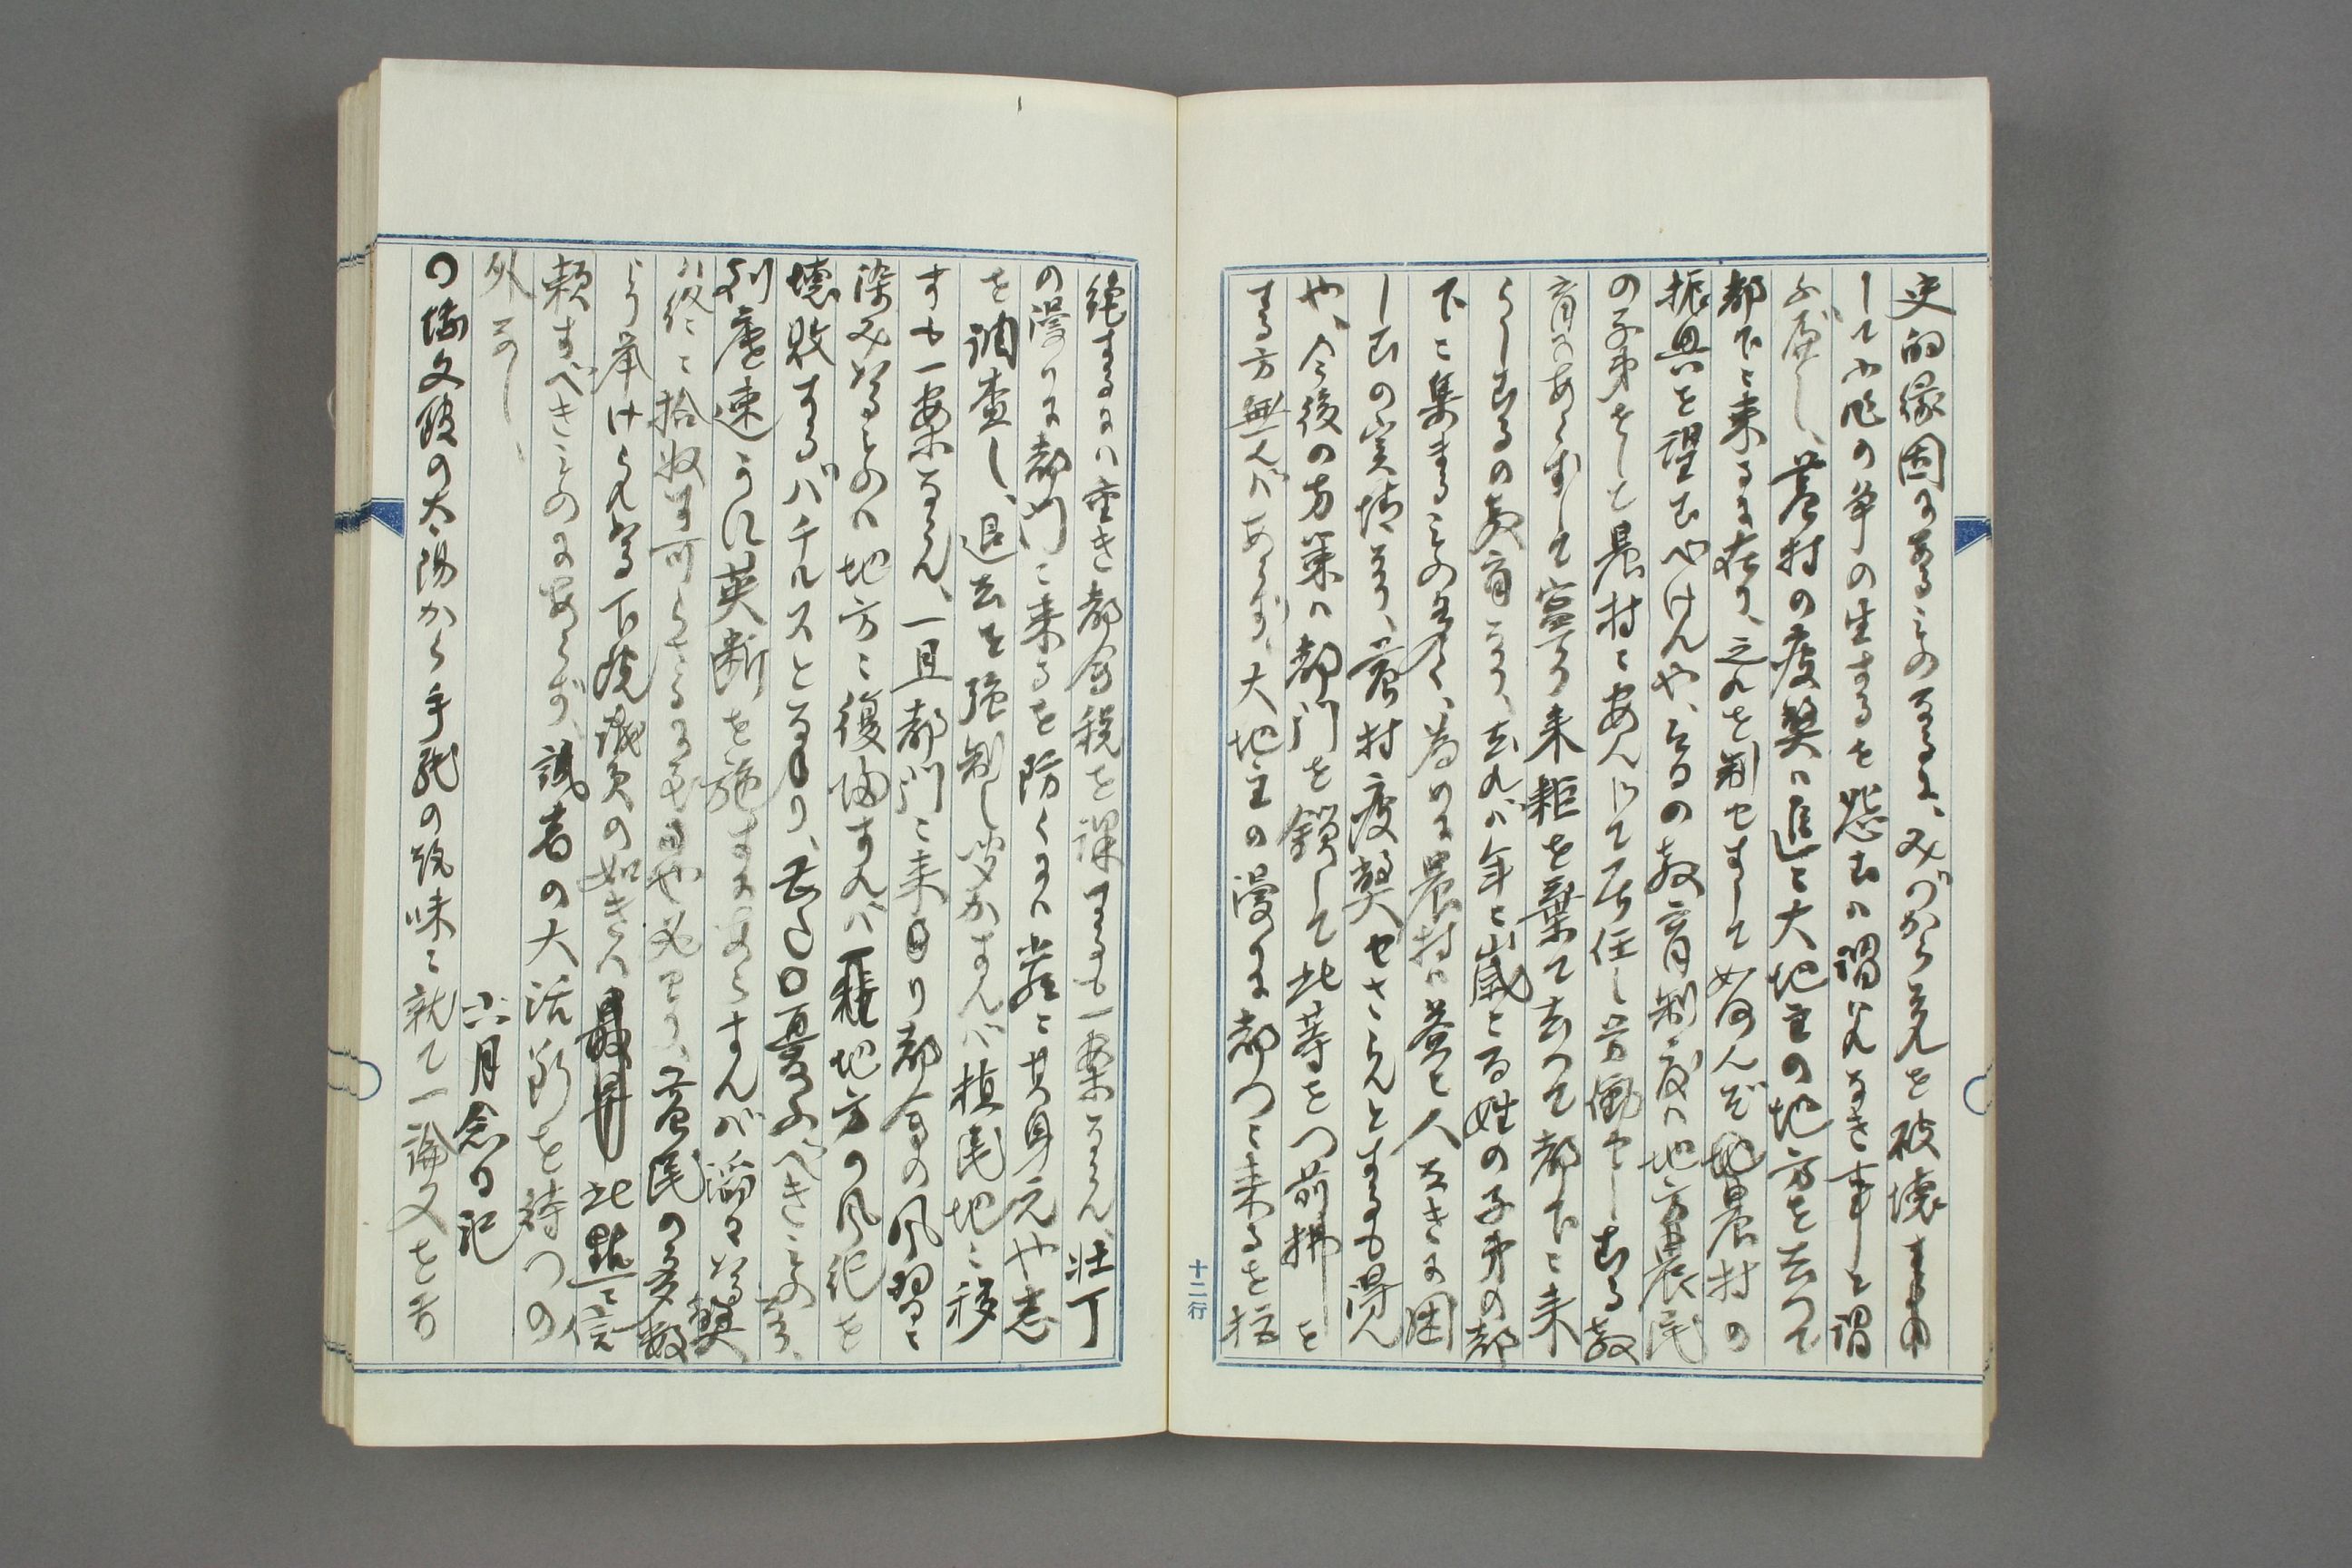 史的縁因のあることのなるに、みづから之れを破壊
して小作の争の生ずるを怨むハ謂はれなき事と謂
ふ可し、農村の疲弊ハ進ミ大地主の地方を去つて
都下に来るに在り、之れを制せずして如何んぞ農村の
振興を望むべけんや、今日の教育制度ハ地方農民
の子弟をして農村に安んじて居住し労働せしむる教
育にあらずして寧ろ耒耟を棄て去つて都下に来
らしむるの教育なり、去れバ年と歳とる姓の子弟の都
下に集まるもの多く、為めに農村ハ益と人なきに困
しむの実情なり、農村疲弊せざらんとするも得ん
や、今後の方策ハ都門を鎖して此等を門前払を
する方無んバあらず、大地主の漫りに都門に来るを拒
絶するにハ重き都会税を課するも一案ならん、壮丁
の漫りに都門に来るを防ぐにハ厳に其身元や志
を調査し、退去を強制し聞かずんバ植民地に移
すも一案ならん、一旦都門に来り都会の風習に
染みたるものハ地方に復帰すれバ一種地方の風紀を
壊敗するバチルスとなり、尤も憂ふべきことなり、
到底速かに英断を施すにあらずんバ滔々たる弊
ハ終に拾収す可からざるに至るや必せり、農民の多数
より挙けられたる下院議員の如きハ最早此點に信
頼すべきものにあらず、識者の大活断を待つの
外なし、
六月念日記
〇坳文陂の太陽から手紙の趣味に就て一論文を寄
十二行